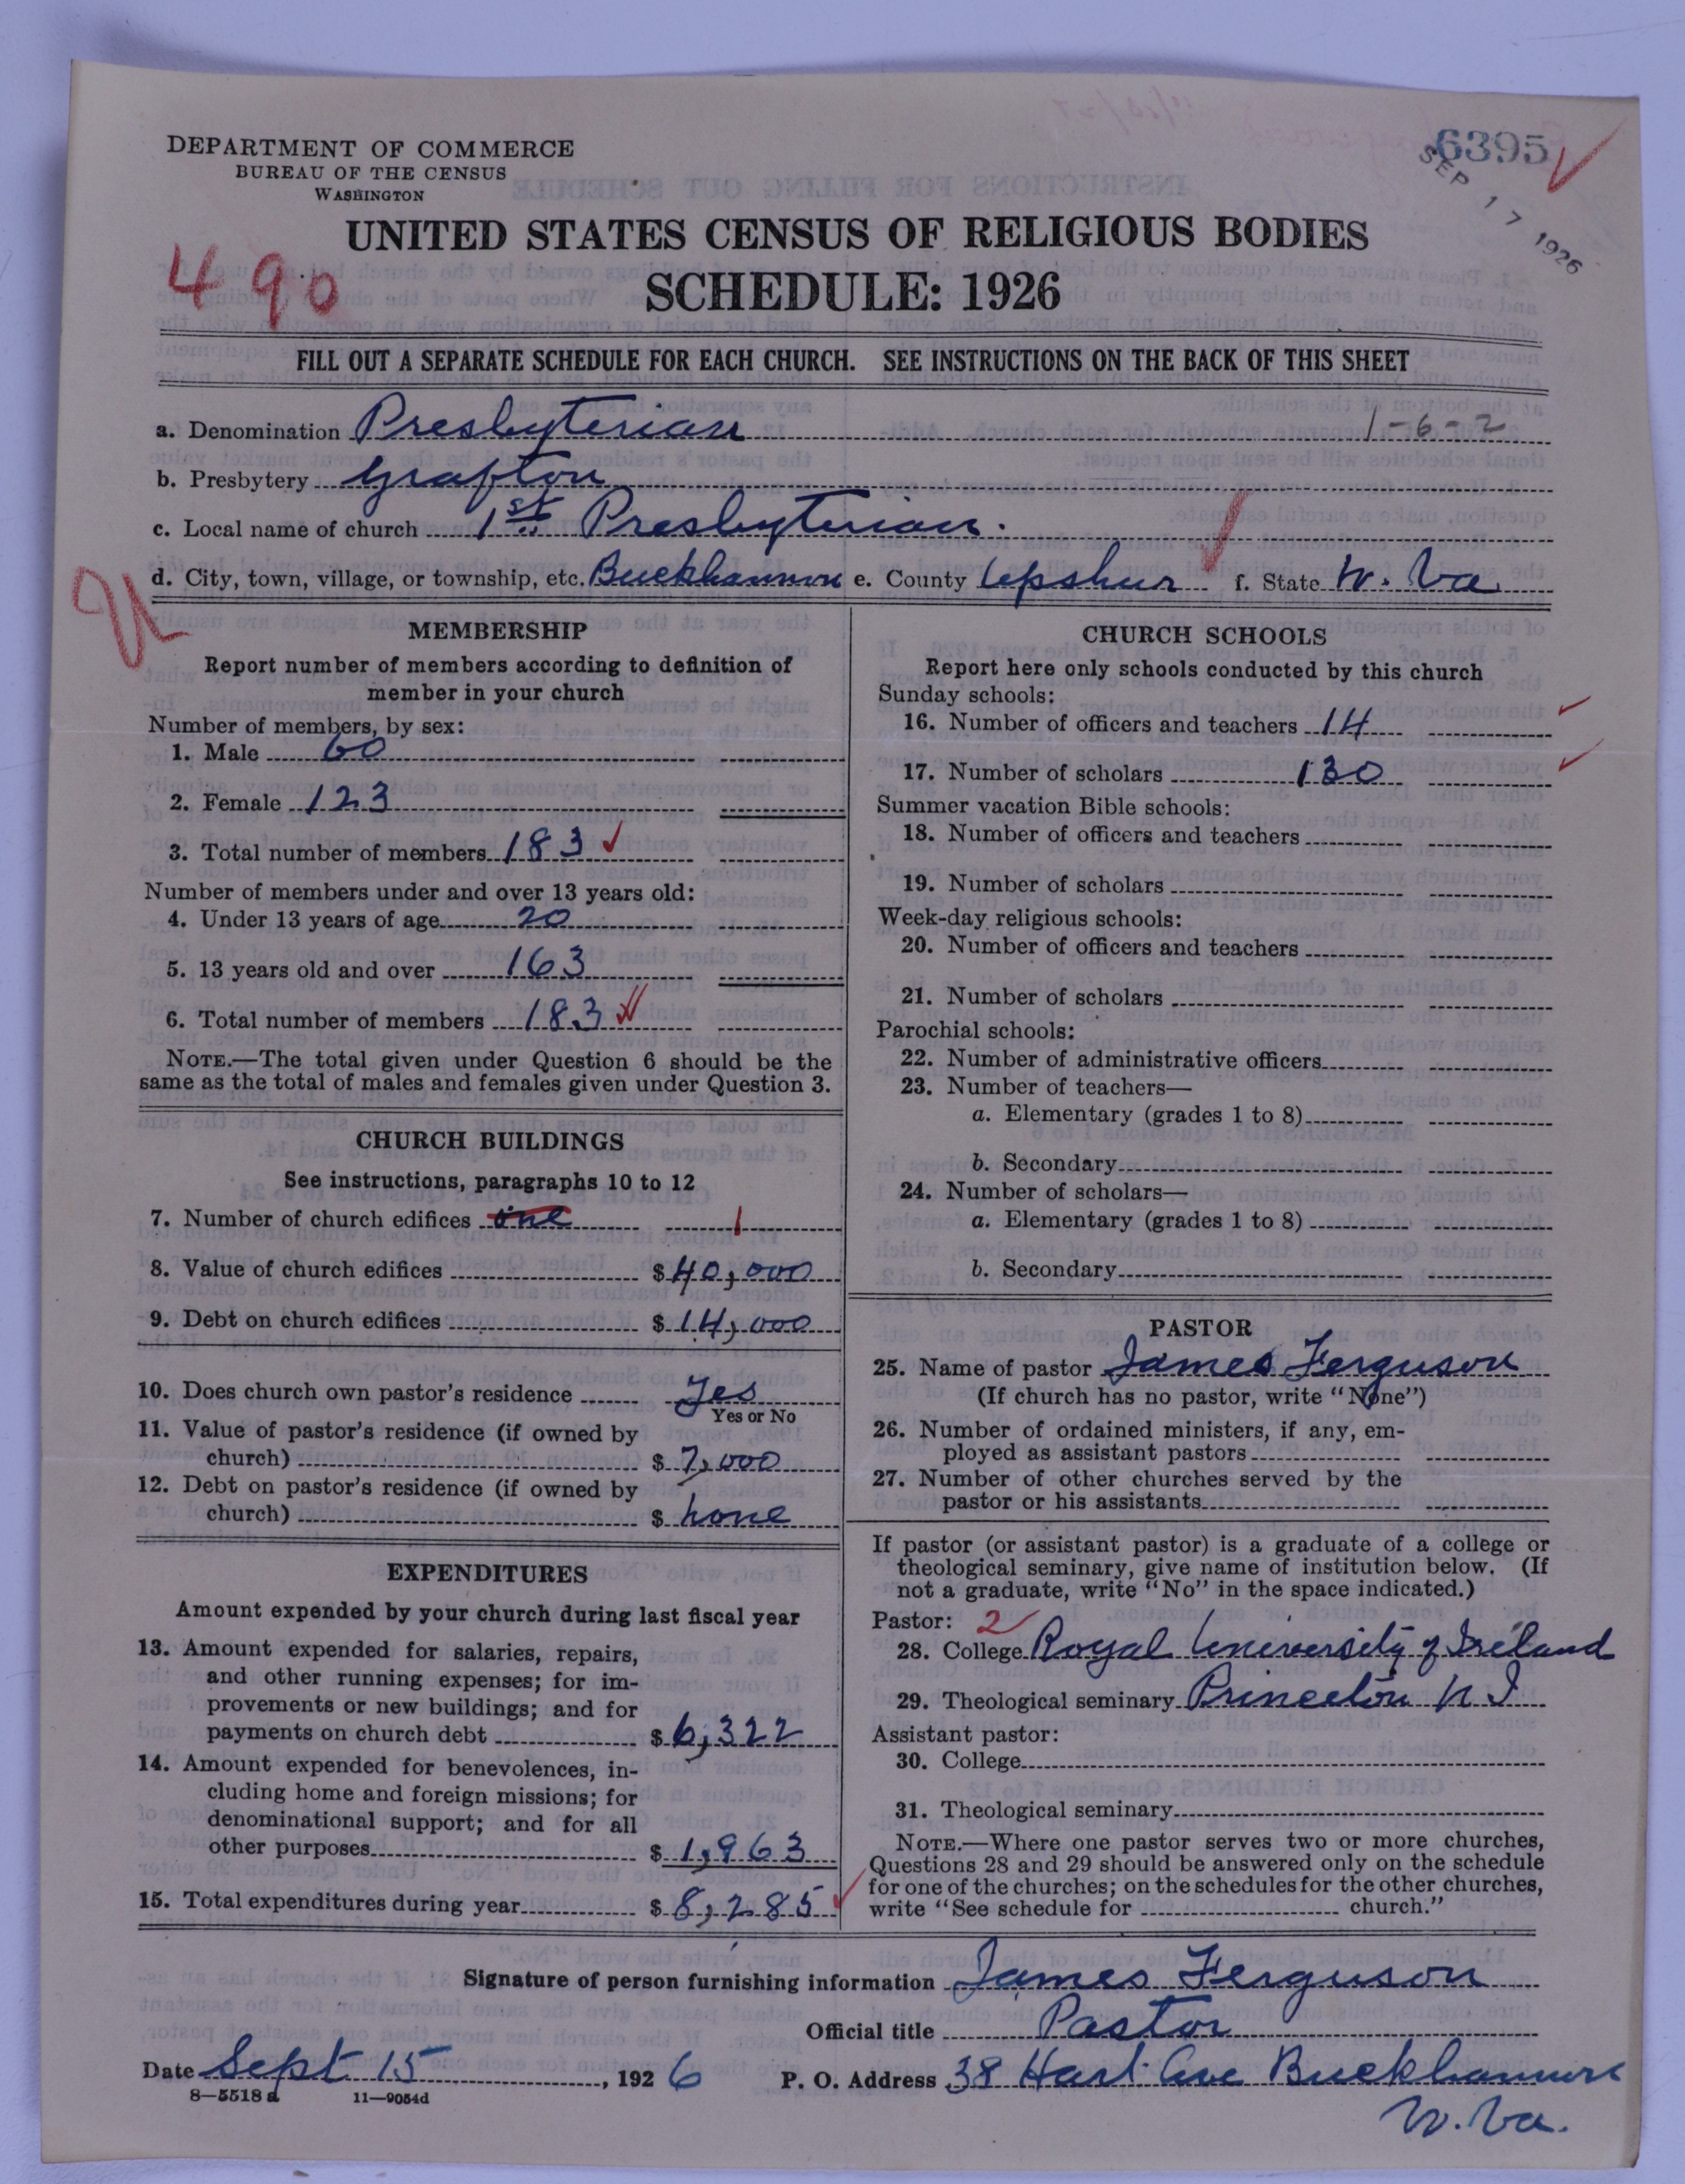 DEPARTMENT OF COMMERCE
BUREAU OF THE CENSUS
WASHINGTON
6395
SEP 17 1926
UNITED STATES CENSUS OF RELIGIOUS BODIES
490
SCHEDULE: 1926
FILL OUT A SEPARATE SCHEDULE FOR EACH CHURCH. SEE INSTRUCTIONS ON THE BACK OF THIS SHEET
a. Denomination Presbyterian 1-6-2
b. Presbytery Grafton
c. Local name of church 1st Presbyterian.
d. City, town, village, or township, etc. Buckhannon e. County Upshur f. State W. Va.
MEMBERSHIP
Report number of members according to definition of
member in your church
Number of members, by sex:
1. Male 60
2. Female 123
3. Total number of members 183
Number of members under and over 13 years old:
4. Under 13 years of age 20
5. 13 years old and over 163
6. Total number of members 183
NOTE.—The total given under Question 6 should be the
same as the total of males and females given under Question 3.
CHURCH BUILDINGS
See instructions, paragraphs 10 to 12
7. Number of church edifices one 1
8. Value of church edifices $ 40,000
9. Debt on church edifices $ 14,000
10. Does church own pastor's residence Yes
Yes or No
11. Value of pastor's residence (if owned by
church) $ 7,000
12. Debt on pastor's residence (if owned by
church) $ none
EXPENDITURES
Amount expended by your church during last fiscal year
13. Amount expended for salaries, repairs,
and other running expenses; for im-
provements or new buildings; and for
payments on church debt $ 6,322
14. Amount expended for benevolences, in-
cluding home and foreign missions; for
denominational support; and for all
other purposes $ 1,963
15. Total expenditures during year $ 8,285
CHURCH SCHOOLS
Report here only schools conducted by this church
Sunday schools:
16. Number of officers and teachers 14
17. Number of scholars 130
Summer vacation Bible schools:
18. Number of officers and teachers
19. Number of scholars
Week-day religious schools:
20. Number of officers and teachers
21. Number of scholars
Parochial schools:
22. Number of administrative officers
23. Number of teachers—
a. Elementary (grades 1 to 8)
b. Secondary
24. Number of scholars—
a. Elementary (grades 1 to 8)
b. Secondary
PASTOR
25. Name of pastor James Ferguson
(If church has no pastor, write "None")
26. Number of ordained ministers, if any, em-
ployed as assistant pastors
27. Number of other churches served by the
pastor or his assistants
If pastor (or assistant pastor) is a graduate of a college or
theological seminary, give name of institution below. (If
not a graduate, write "No" in the space indicated.)
Pastor: 2
28. College Royal University of Ireland
29. Theological seminary Princeton N J
Assistant pastor:
30. College
31. Theological seminary
NOTE.—Where one pastor serves two or more churches,
Questions 28 and 29 should be answered only on the schedule
for one of the churches; on the schedules for the other churches,
write "See schedule for church."
Signature of person furnishing information James Ferguson
Official title Pastor
Date Sept 15, 1926 P. O. Address 38 Hart Ave Buckhannon
W. Va.
8—5518 a 11—9054d